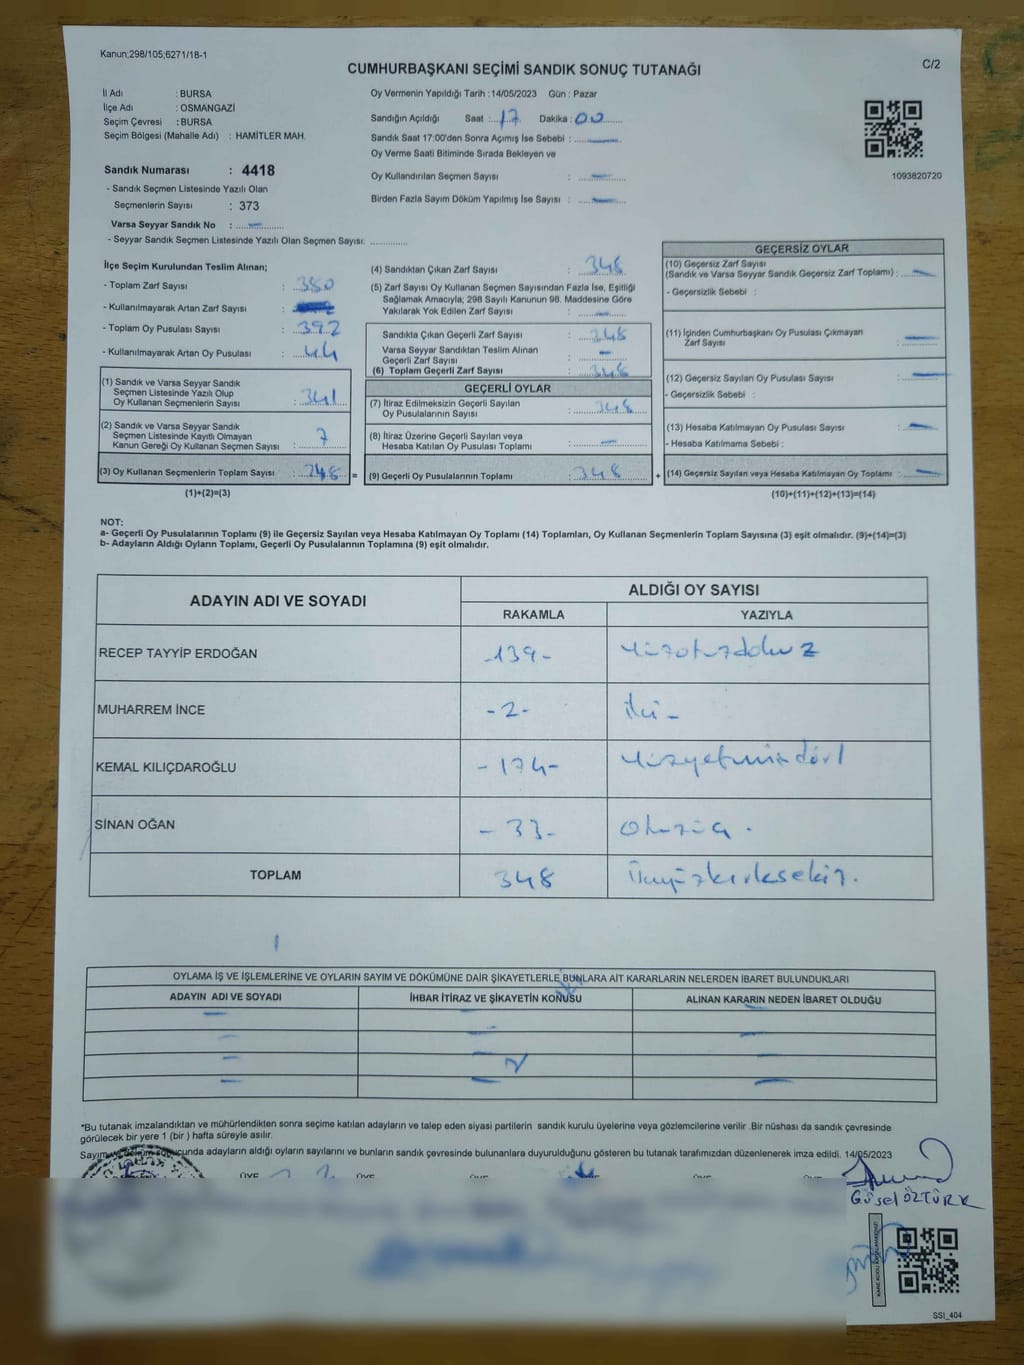 Kanun;298/105;6271/18-1
C/2
CUMHURBAŞKANI SEÇİMİ SANDIK SONUÇ TUTANAĞI
İl Adı : BURSA
İlçe Adı : OSMANGAZİ
Seçim Çevresi : BURSA
Seçim Bölgesi (Mahalle Adı) : HAMİTLER MAH.
Oy Vermenin Yapıldığı Tarih :14/05/2023 Gün : Pazar
Sandığın Açıldığı Saat :17 Dakika :00
Sandık Saat 17:00'den Sonra Açımış İse Sebebi : —
Oy Verme Saati Bitiminde Sırada Bekleyen ve
Oy Kullandırılan Seçmen Sayısı : —
Birden Fazla Sayım Döküm Yapılmış İse Sayısı : —
1093820720
Sandık Numarası : 4418
- Sandık Seçmen Listesinde Yazılı Olan
Seçmenlerin Sayısı : 373
Varsa Seyyar Sandık No : —
- Seyyar Sandık Seçmen Listesinde Yazılı Olan Seçmen Sayısı:
İlçe Seçim Kurulundan Teslim Alınan;
- Toplam Zarf Sayısı : 380
- Kullanılmayarak Artan Zarf Sayısı :
- Toplam Oy Pusulası Sayısı : 392
- Kullanılmayarak Artan Oy Pusulası : 44
(1) Sandık ve Varsa Seyyar Sandık
Seçmen Listesinde Yazılı Olup
Oy Kullanan Seçmenlerin Sayısı : 341
(2) Sandık ve Varsa Seyyar Sandık
Seçmen Listesinde Kayıtlı Olmayan
Kanun Gereği Oy Kullanan Seçmen Sayısı : 7
(3) Oy Kullanan Seçmenlerin Toplam Sayısı : 348 =
(1)+(2)=(3)
(4) Sandıktan Çıkan Zarf Sayısı : 348
(5) Zarf Sayısı Oy Kullanan Seçmen Sayısından Fazla İse, Eşitliği
Sağlamak Amacıyla; 298 Sayılı Kanunun 98. Maddesine Göre
Yakılarak Yok Edilen Zarf Sayısı : —
Sandıkta Çıkan Geçerli Zarf Sayısı : 348
Varsa Seyyar Sandıktan Teslim Alınan
Geçerli Zarf Sayısı : —
(6) Toplam Geçerli Zarf Sayısı : 348
GEÇERLİ OYLAR
(7) İtiraz Edilmeksizin Geçerli Sayılan
Oy Pusulalarının Sayısı : 348
(8) İtiraz Üzerine Geçerli Sayılan veya
Hesaba Katılan Oy Pusulası Toplamı : —
(9) Geçerli Oy Pusulalarının Toplamı : 348 +
GEÇERSİZ OYLAR
(10) Geçersiz Zarf Sayısı
(Sandık ve Varsa Seyyar Sandık Geçersiz Zarf Toplamı) : —
- Geçersizlik Sebebi :
(11) İçinden Cumhurbaşkanı Oy Pusulası Çıkmayan
Zarf Sayısı : —
(12) Geçersiz Sayılan Oy Pusulası Sayısı : —
- Geçersizlik Sebebi :
(13) Hesaba Katılmayan Oy Pusulası Sayısı : —
- Hesaba Katılmama Sebebi :
(14) Geçersiz Sayılan veya Hesaba Katılmayan Oy Toplamı : —
(10)+(11)+(12)+(13)=(14)
NOT:
a- Geçerli Oy Pusulalarının Toplamı (9) ile Geçersiz Sayılan veya Hesaba Katılmayan Oy Toplamı (14) Toplamları, Oy Kullanan Seçmenlerin Toplam Sayısına (3) eşit olmalıdır. (9)+(14)=(3)
b- Adayların Aldığı Oyların Toplamı, Geçerli Oy Pusulalarının Toplamına (9) eşit olmalıdır.
ADAYIN ADI VE SOYADI
ALDIĞI OY SAYISI
RAKAMLA YAZIYLA
RECEP TAYYİP ERDOĞAN -139- Yüzotuzdokuz
MUHARREM İNCE -2- iki -
KEMAL KILIÇDAROĞLU -174- Yüzyetmişdört
SİNAN OĞAN -33- Otuzüç.
TOPLAM 348 Üçyüzkırksekiz.
OYLAMA İŞ VE İŞLEMLERİNE VE OYLARIN SAYIM VE DÖKÜMÜNE DAİR ŞİKAYETLERLE BUNLARA AİT KARARLARIN NELERDEN İBARET BULUNDUKLARI
ADAYIN ADI VE SOYADI İHBAR İTİRAZ VE ŞİKAYETİN KONUSU ALINAN KARARIN NEDEN İBARET OLDUĞU
*Bu tutanak imzalandıktan ve mühürlendikten sonra seçime katılan adayların ve talep eden siyasi partilerin sandık kurulu üyelerine veya gözlemcilerine verilir .Bir nüshası da sandık çevresinde
görülecek bir yere 1 (bir ) hafta süreyle asılır.
Sayım ve döküm sonucunda adayların aldığı oyların sayılarını ve bunların sandık çevresinde bulunanlara duyurulduğunu gösteren bu tutanak tarafımızdan düzenlenerek imza edildi. 14/05/2023
ÜYE ÜYE
Güsel ÖZTÜRK
SSİ_404